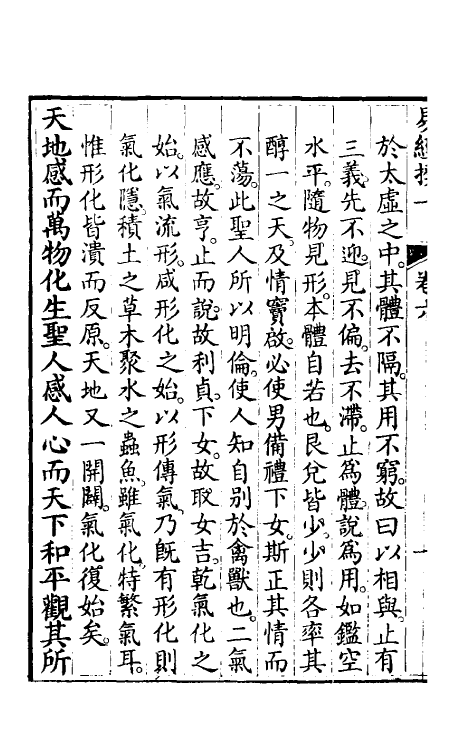 易經揆一　卷六　十
於太虛之中其體不隔其用不窮故曰以相與止有
三義先不迎見不偏去不滯止爲體說爲用如鑑空
水平隨物見形本體自若也艮兌皆少少則各率其
醇一之天及情竇啟必使男備禮下女斯正其情而
不蕩此聖人所以明倫使人知自别於禽獸也二氣
感應故亨止而說故利貞下女故取女吉乾氣化之
始以氣流形咸形化之始以形傳氣乃既有形化則
氣化隱積土之草木聚水之蟲魚雖氣化特繁氣耳
惟形化皆潰而反原天地又一開闢氣化復始矣
天地感而萬物化生聖人感人心而天下和平觀其所